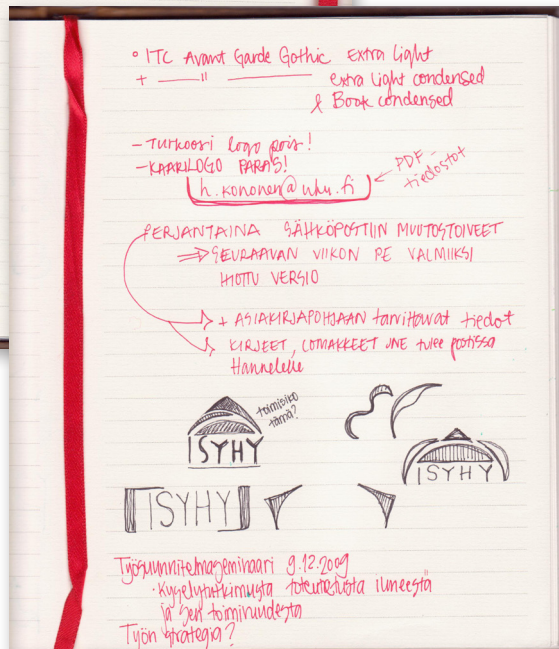 ° ITC Avant Garde Gothic Extra Light
+ —— " —— extra light condensed
& Book condensed
- TURKOOSI logo pois!
- KAARILOGO PARAS!
h.kononen@uku.fi
← PDF-
tiedostot
PERJANTAINA SÄHKÖPOSTIIN MUUTOSTOIVEET
⇒ SEURAAVAN VIIKON PE VALMIIKSI
HIOTTU VERSIO
+ ASIAKIRJAPOHJAAN tarvittavat tiedot
KIRJEET, LOMAKKEET JNE tulee postissa
Hannelelle
toimisiko
tämä?
ISYHY
ISYHY
ISYHY
Työsuunnitelmaseminaari 9.12.2009
· Kyselytutkimusta toteutetusta ilmeestä
ja sen toimivuudesta
Työn strategia?